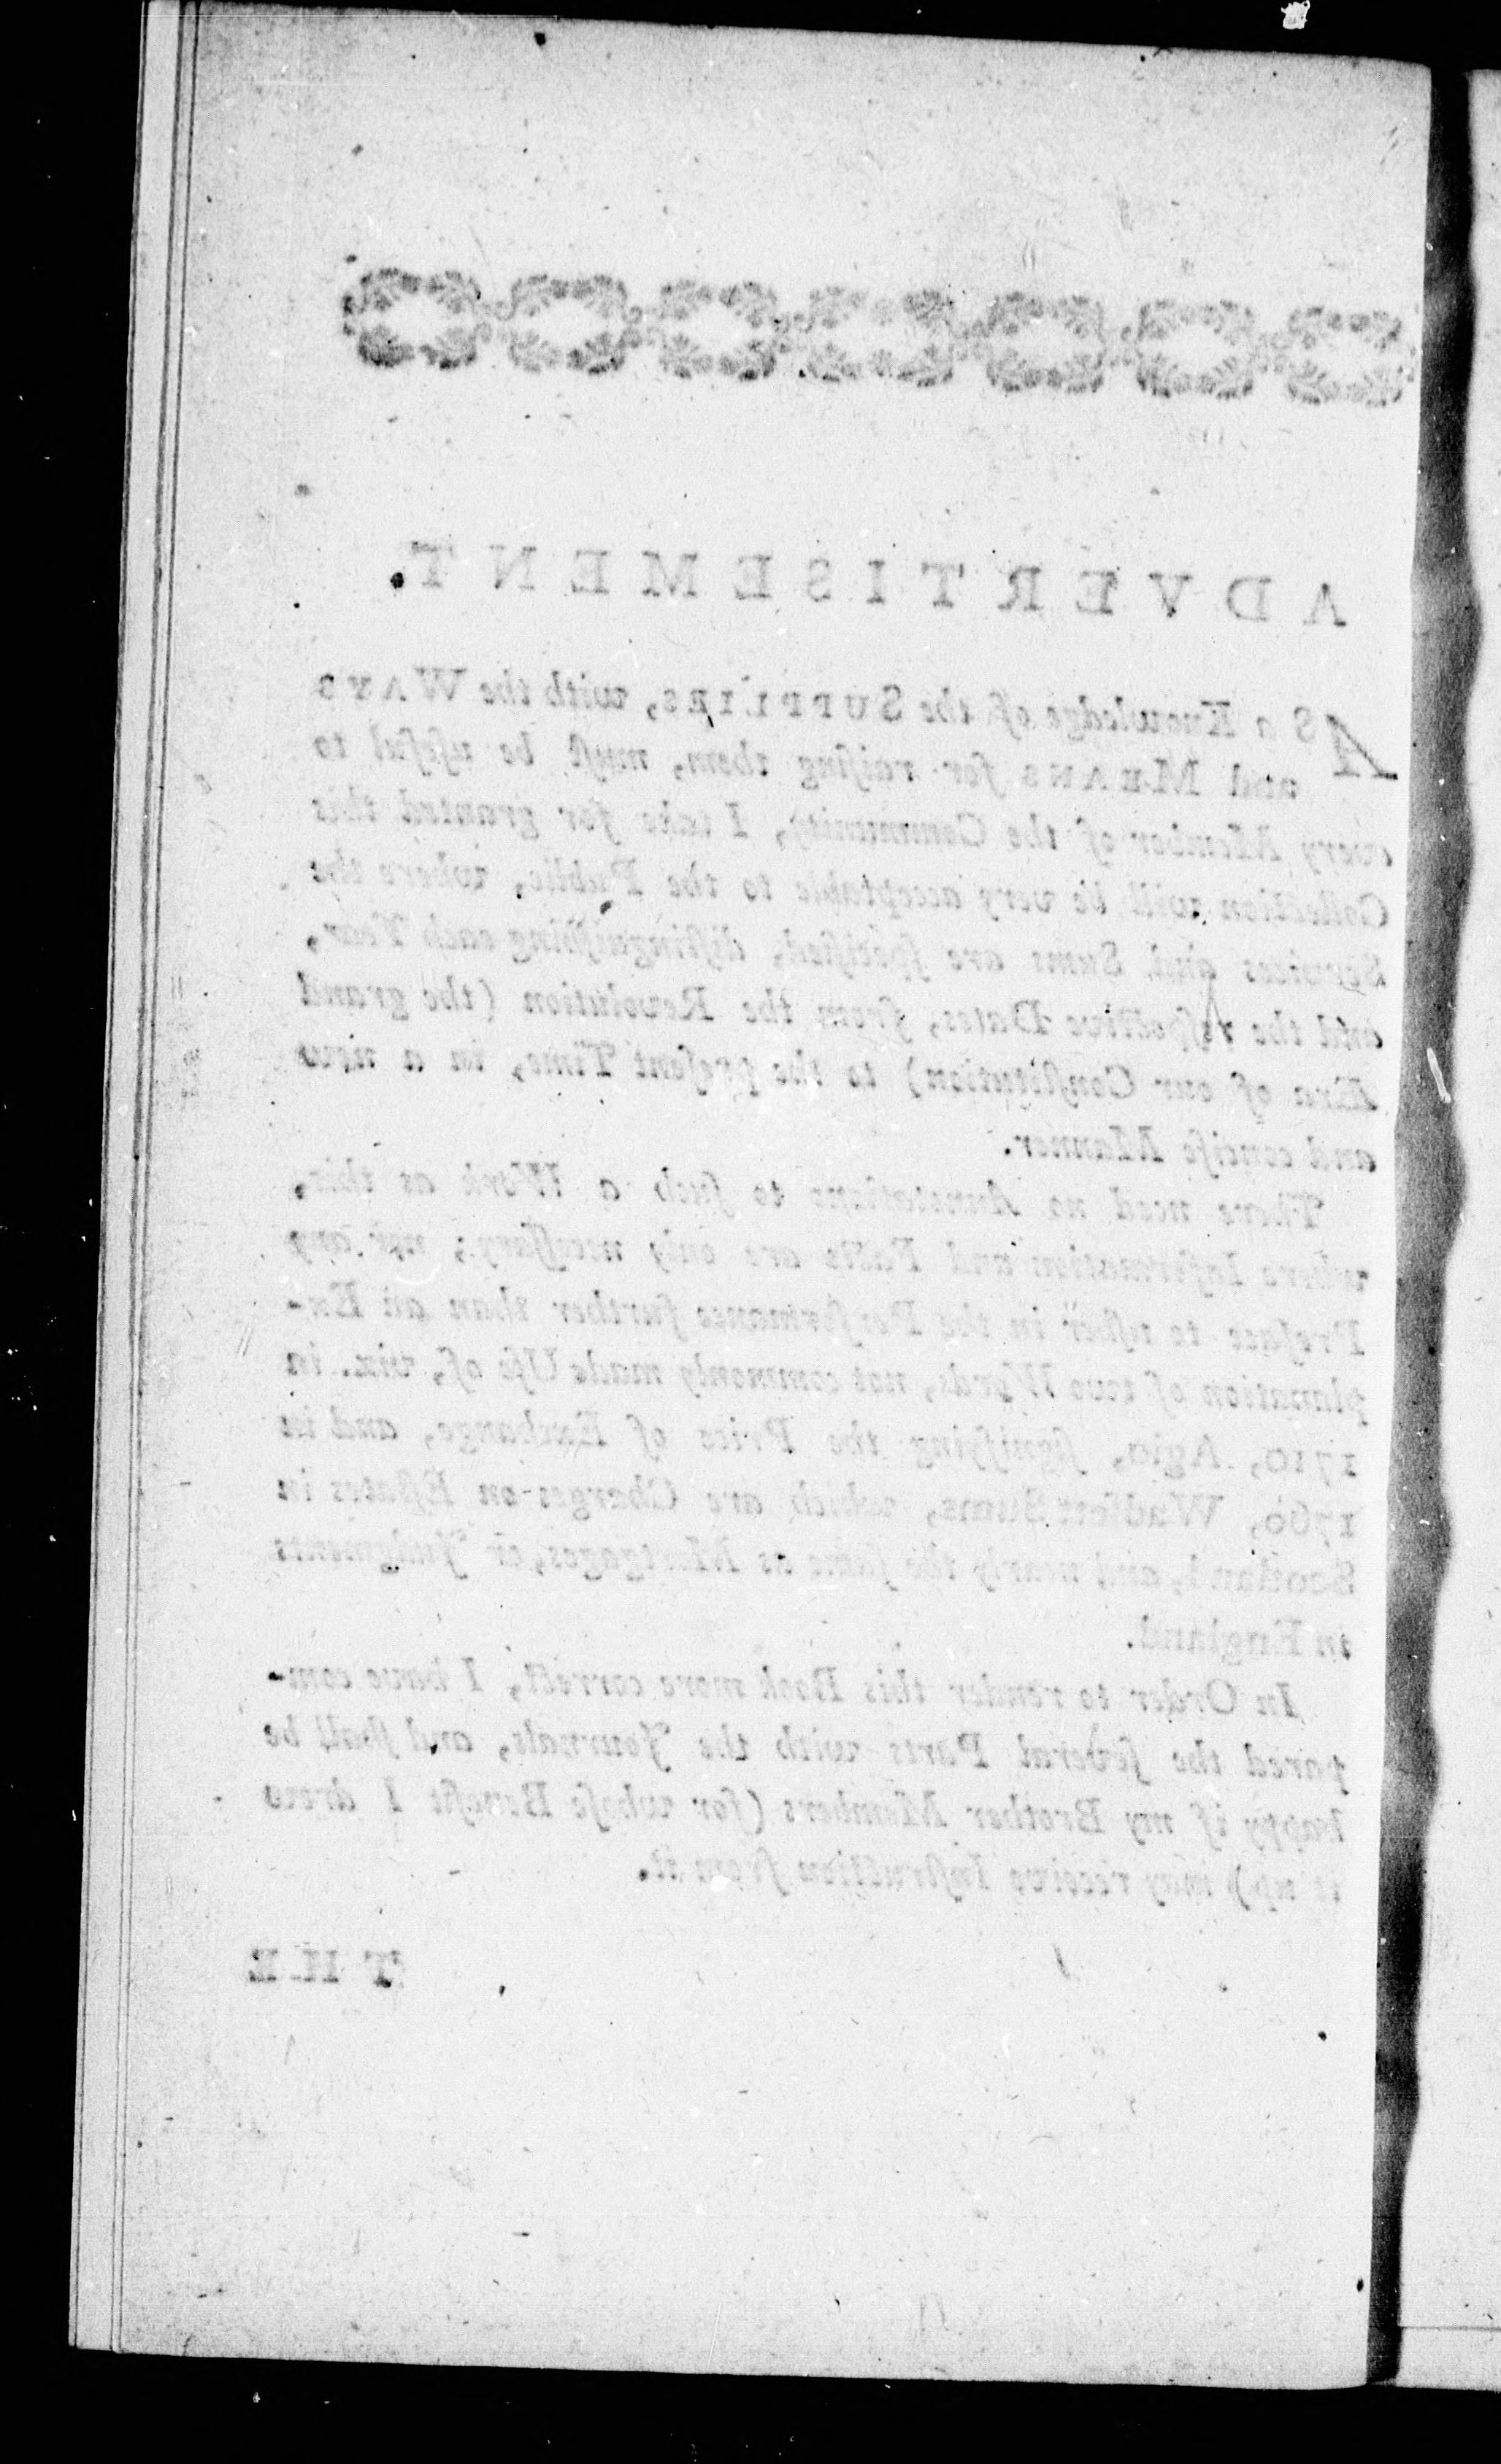 ADVERTISEMENT.
AS a Knowledge of the SUPPLIES, with the WAYS
and MEANS for raiſing them, muſt be uſeful to
every Member of the Community, I take for granted this
Collection will be very acceptable to the Public, where the
Services and Sums are ſpecified, diſtinguiſhing each Year,
and the reſpective Dates, from the Revolution (the grand
Æra of our Conſtitution) to the preſent Time, in a new
and conciſe Manner.
There need no Annotations to ſuch a Work as this,
where Information and Facts are only neceſſary; nor any
Preface to uſher in the Performance further than an Ex-
planation of two Words, not commonly made Uſe of, viz. in
1710, Agio, ſignifying the Price of Exchange, and in
1760, Wadſett Sums, which are Charges on Eſtates in
Scotland, and nearly the ſame as Mortgages, or Judgments
in England.
In Order to render this Book more correct, I have com-
pared the ſeveral Parts with the Journals, and ſhall be
happy if my Brother Members (for whoſe Benefit I drew
it up) may receive Inſtruction from it.
THE